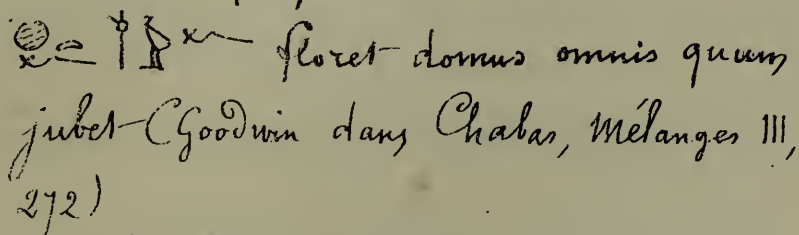 floret domus omnis quum
jubet (Goodwin dans Chabas, Mélanges III,
272)